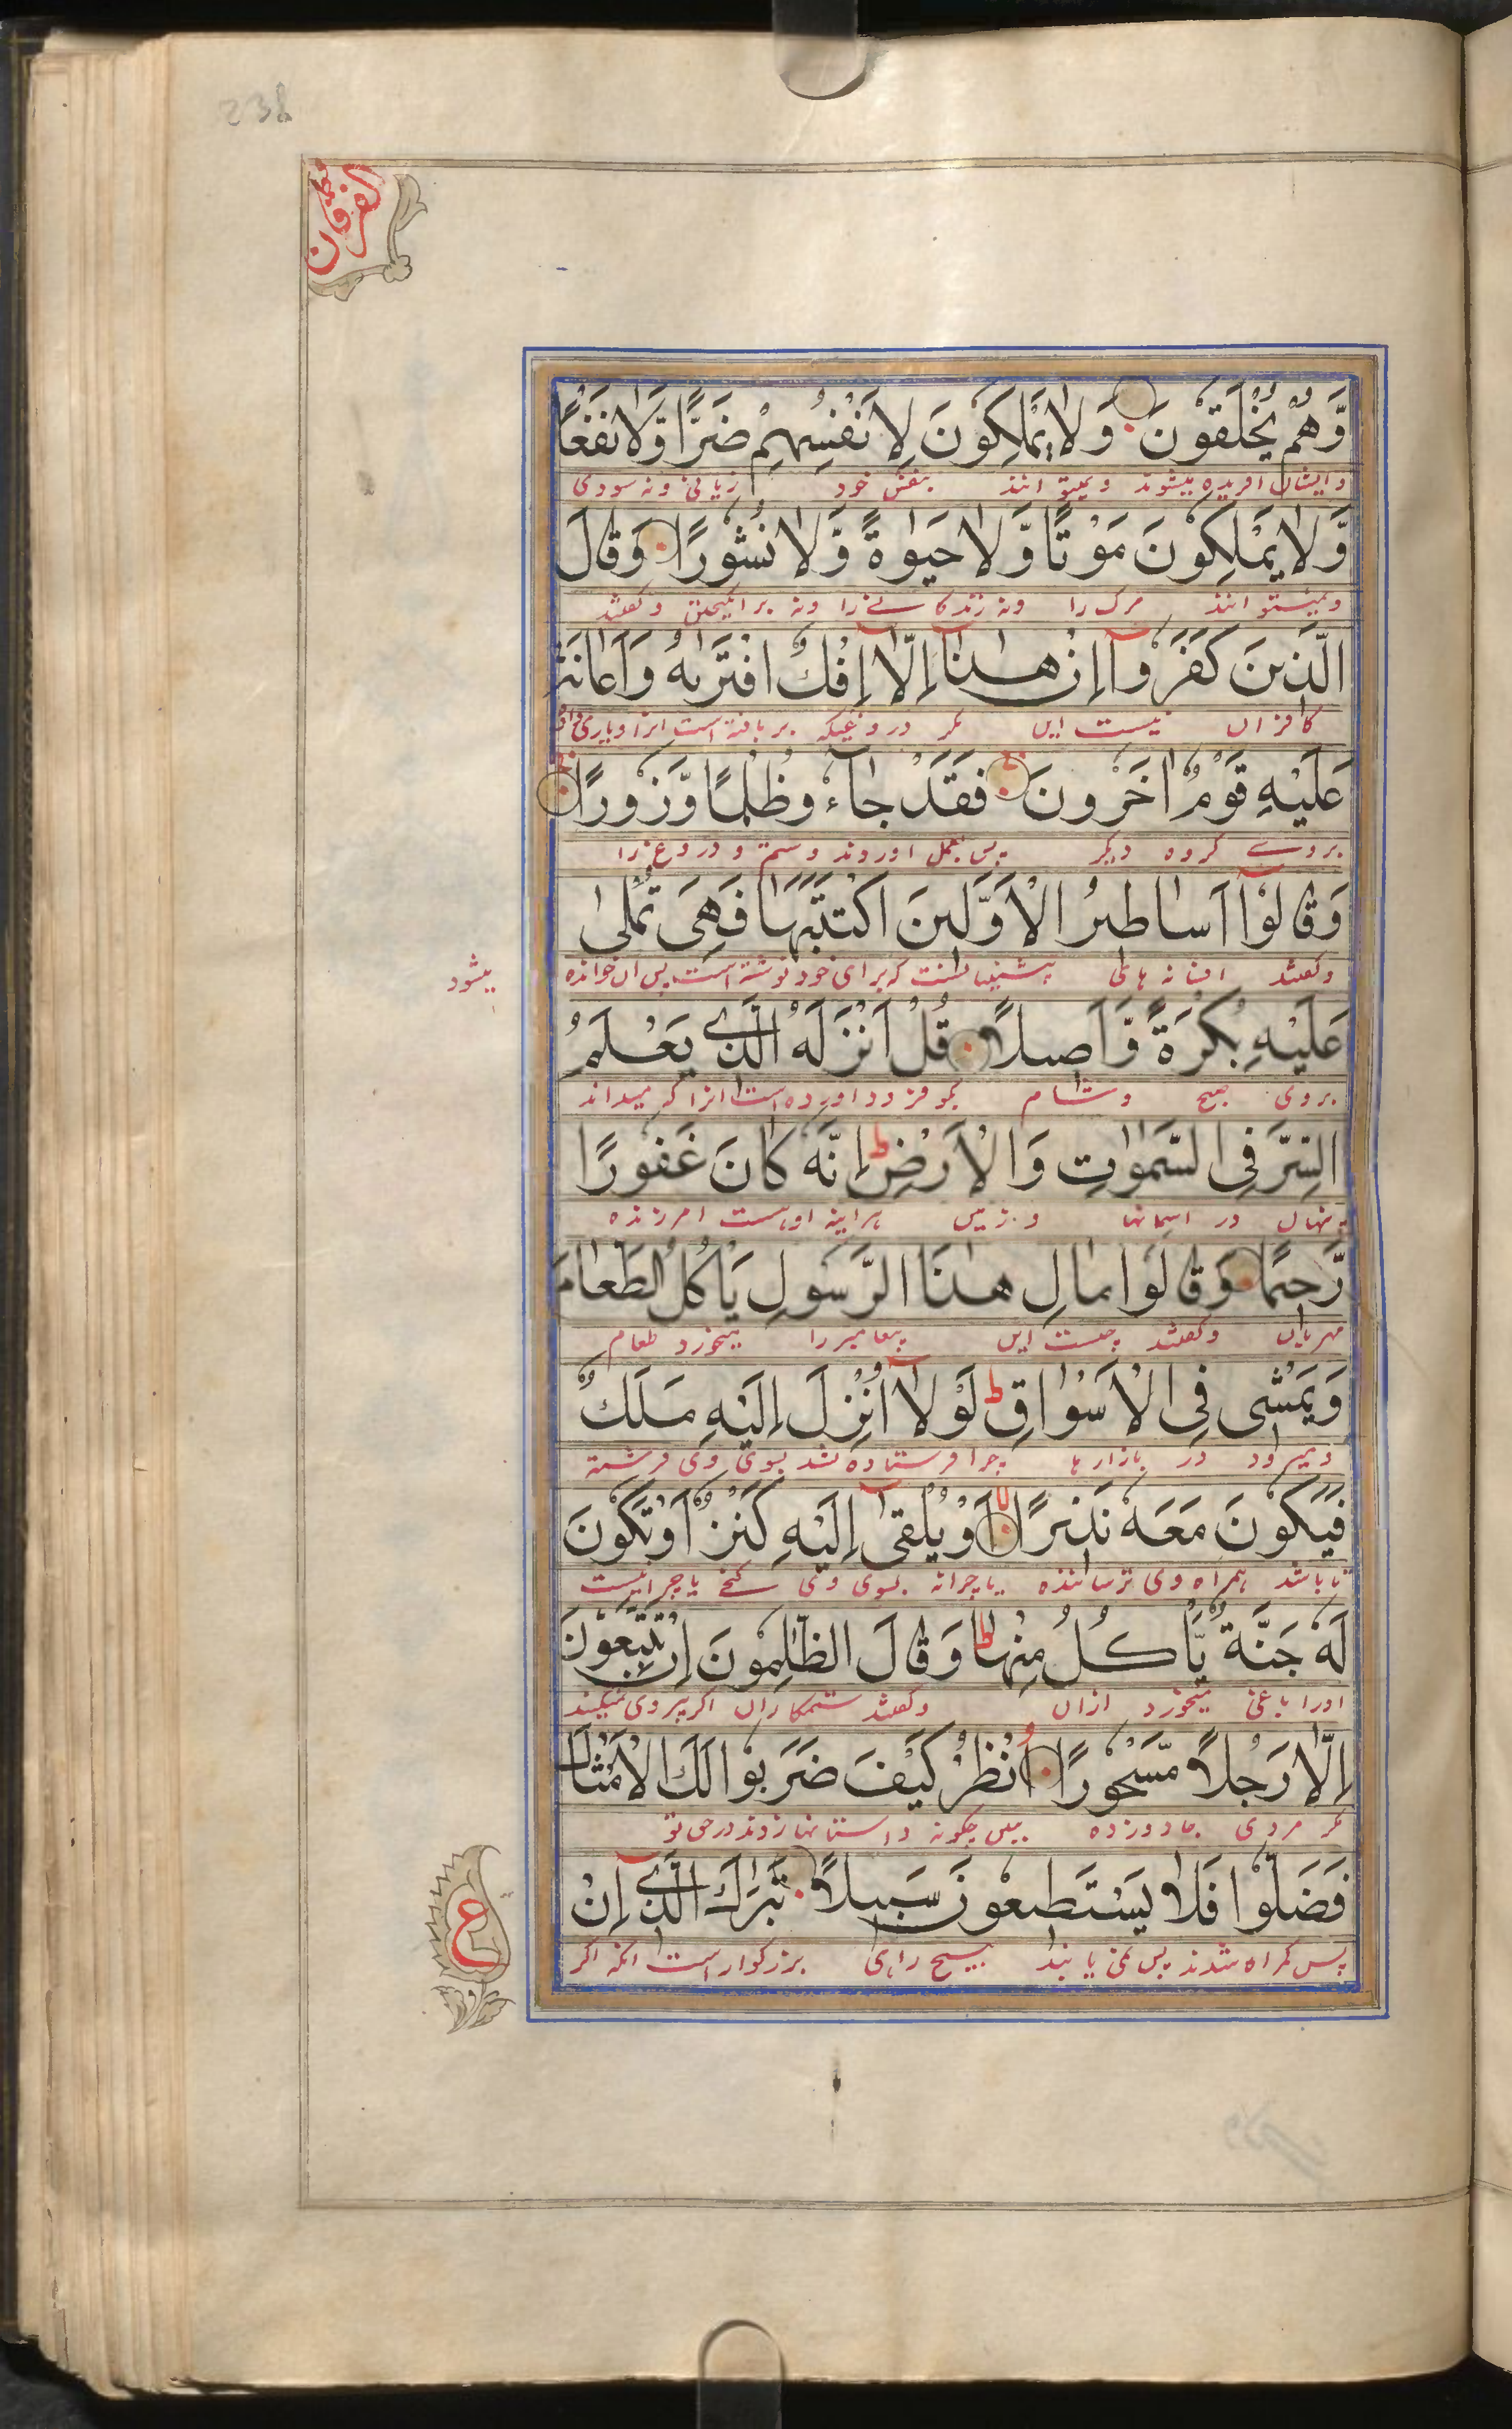 238
الفرقان
وَّهُمْ يُخْلَقُوْنَ وَلَا يَمْلِكُوْنَ لِاَنْفُسِهِمْ ضَرًّا وَّلَا نَفْعًا
و ایشان افریده میشوند و نمیتوانند بنفس خود زیانی و نه سودی
وَّلَا يَمْلِكُوْنَ مَوْتًا وَّلَا حَيٰوةً وَّلَا نُشُوْرًا وَقَالَ
و نمیتوانند مرک را ونه زندکانے را ونه برانکیختن و کفتند
الَّذِيْنَ كَفَرُوْۤا اِنْ هٰذَاۤ اِلَّاۤ اِفْكٌ افْتَرٰىهُ وَاَعَانَهٗ
کافران نیست این مکر دروغیکه بربافته است انرا ویاری داد
عَلَيْهِ قَوْمٌ اٰخَرُوْنَ فَقَدْ جَآءُوْ ظُلْمًا وَّزُوْرًا
بروے کروه دیکر پس بعمل اوردند وستم و دروغ را
وَقَالُوْۤا اَسَاطِيْرُ الْاَوَّلِيْنَ اكْتَتَبَهَا فَهِيَ تُمْلٰى
وکفتند افسانه های پیشینیانست که برای خود نوشته است پس ان خوانده
میشود
عَلَيْهِ بُكْرَةً وَّاَصِيْلًا قُلْ اَنْزَلَهُ الَّذِيْ يَعْلَمُ
بروی صبح وشام بکو فرود اورده است انرا که میداند
السِّرَّ فِي السَّمٰوٰتِ وَالْاَرْضِ ط اِنَّهٗ كَانَ غَفُوْرًا
پنهان در اسمانها و زمین هراینه او هست امرزنده
رَّحِيْمًا وَقَالُوْا مَالِ هٰذَا الرَّسُوْلِ يَاْكُلُ الطَّعَامَ
مهربان وکفتند چیست این پیغامبر را میخورد طعام
وَيَمْشِيْ فِي الْاَسْوَاقِ ط لَوْلَاۤ اُنْزِلَ اِلَيْهِ مَلَكٌ
ومیرود در بازارها چرا فرستاده نشد بسوی وی فرشته
فَيَكُوْنَ مَعَهٗ نَذِيْرًا لا اَوْ يُلْقٰۤى اِلَيْهِ كَنْزٌ اَوْ تَكُوْنُ
تا باشد همراه وی ترساننده یا چرانه بسوی وی کنج یا چرا نیست
لَهٗ جَنَّةٌ يَّاْكُلُ مِنْهَا ط وَقَالَ الظّٰلِمُوْنَ اِنْ تَتَّبِعُوْنَ
اورا باغی میخورد ازان وکفتند ستمکاران اکر پیروی نمیکنید
اِلَّا رَجُلًا مَّسْحُوْرًا اُنْظُرْ كَيْفَ ضَرَبُوْا لَكَ الْاَمْثَالَ
مکر مردی جادو زده ببین چکونه داستانها زدند در حق تو
فَضَلُّوْا فَلَا يَسْتَطِيْعُوْنَ سَبِيْلًا تَبٰرَكَ الَّذِيْۤ اِنْ
پس کمراه شدند پس نمی یابند هیچ راهی بزرکوار است انکه اکر
ع